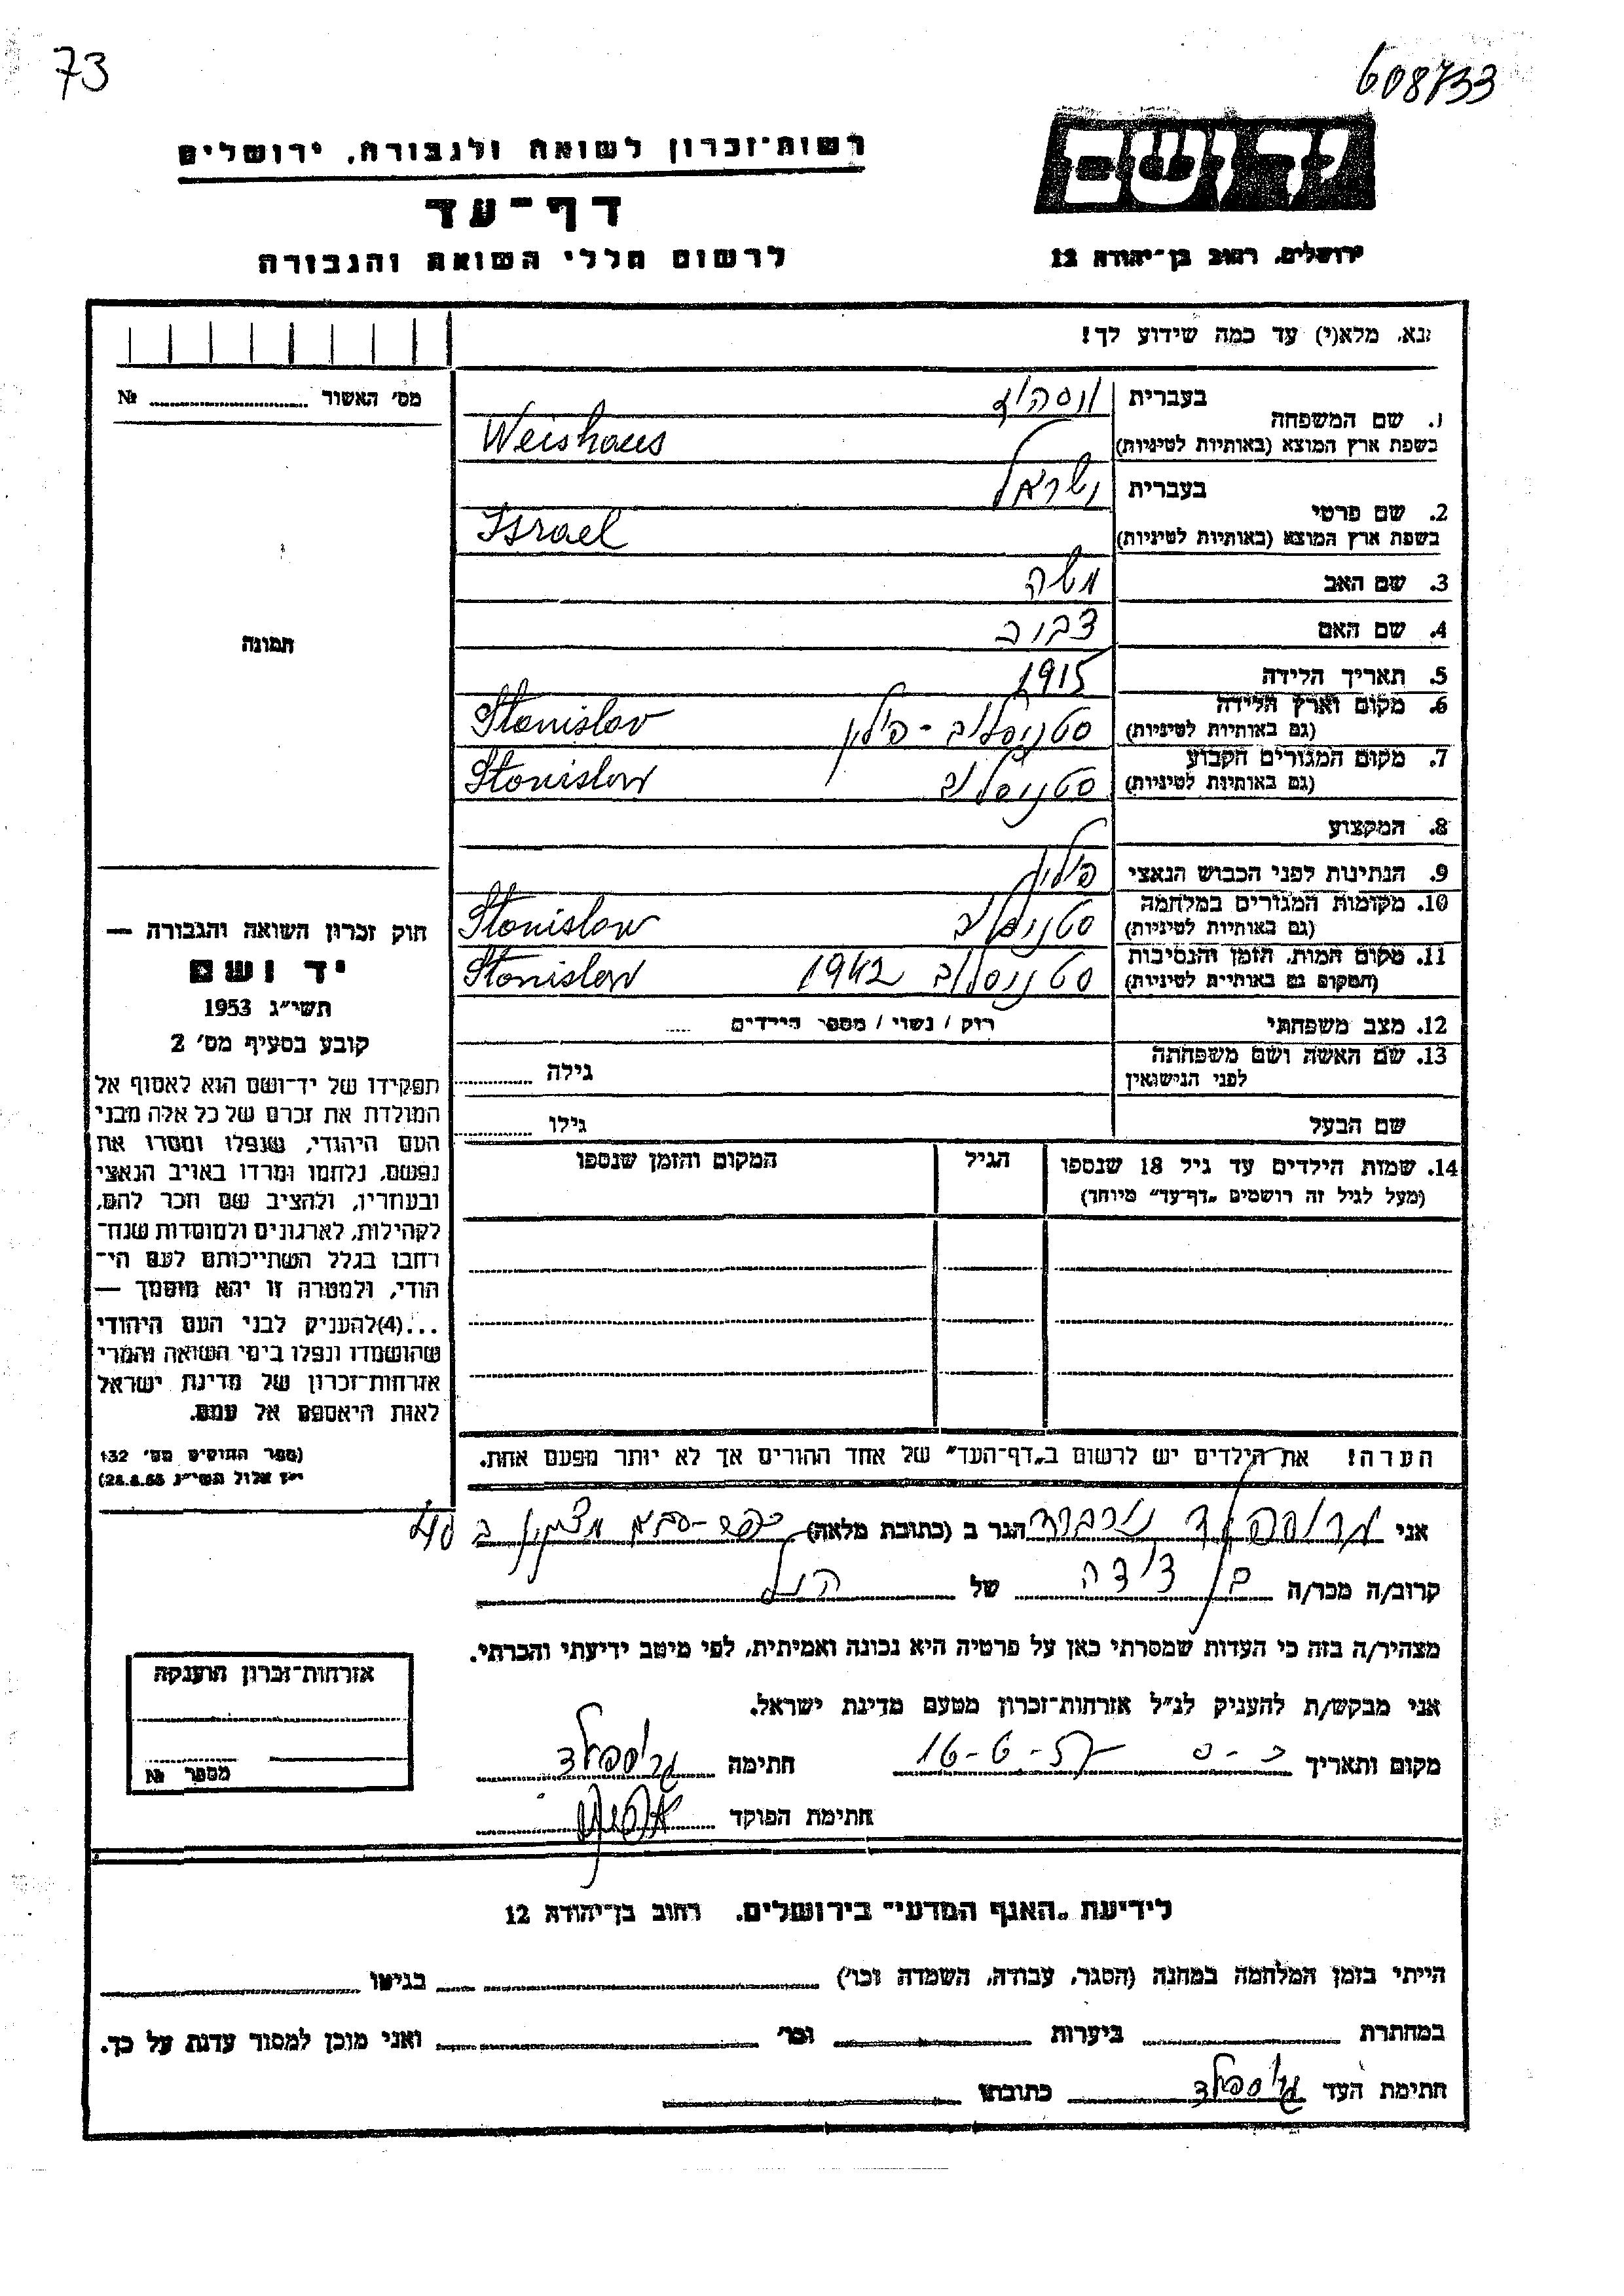 73
608733
רשות־זכרון לשואה ולגבורה, ירושלים
דף־עד
לרשום חללי השואה והגבורה
יד ושם
ירושלים, רחוב בן־יהודה 12
נא, מלא(י) עד כמה שידוע לך!
מס' האשור № 
1. שם המשפחה בעברית
בשפת ארץ המוצא (באותיות לטיניות) Weishaus
2. שם פרטי בעברית ישראל
בשפת ארץ המוצא (באותיות לטיניות) Israel
3. שם האב משה
4. שם האם
5. תאריך הלידה 1915
6. מקום וארץ הלידה (גם באותיות לטיניות) סטניסלוב - פולין Stanislov
7. מקום המגורים הקבוע (גם באותיות לטיניות) סטניסלוב Stanislov
8. המקצוע
9. הנתינות לפני הכבוש הנאצי פולין
10. מקומות המגורים במלחמה (גם באותיות לטיניות) סטניסלוב Stanislov
11. מקום המות, הזמן והנסיבות (המקום גם באותיות לטיניות) סטניסלוב 1942 Stanislov
12. מצב משפחתי רוק / נשוי / מספר הילדים
13. שם האשה ושם משפחתה לפני הנישואין גילה
שם הבעל גילו
14. שמות הילדים עד גיל 18 שנספו הגיל המקום והזמן שנספו
(מעל לגיל זה רושמים „דף־עד" מיוחד)
הערה! את הילדים יש לרשום ב„דף־העד" של אחד ההורים אך לא יותר מפעם אחת.
תמונה
חוק זכרון השואה והגבורה —
יד ושם
תשי״ג 1953
קובע בסעיף מס' 2
תפקידו של יד־ושם הוא לאסוף אל
המולדת את זכרם של כל אלה מבני
העם היהודי, שנפלו ומסרו את
נפשם, נלחמו ומרדו באויב הנאצי
ובעוזריו, ולהציב שם וזכר להם,
לקהילות, לארגונים ולמוסדות שנח־
רבו בגלל השתייכותם לעם הי־
הודי, ולמטרה זו יהא מוסמך —
...(4)להעניק לבני העם היהודי
שהושמדו ונפלו בימי השואה והמרי
אזרחות־זכרון של מדינת ישראל
לאות היאספם אל עמם.
(ספר החוקים מס' 132
י״ז אלול תשי״ג 28.8.53)
אני הגר ב (כתובת מלאה) כפר-סבא
קרוב/ה מכר/ה בן דודה של הנ״ל
מצהיר/ה בזה כי העדות שמסרתי כאן על פרטיה היא נכונה ואמיתית, לפי מיטב ידיעתי והכרתי.
אני מבקש/ת להעניק לנ״ל אזרחות־זכרון מטעם מדינת ישראל.
מקום ותאריך כ-ס 16-6-57 חתימה
חתימת הפוקד
אזרחות־זכרון הוענקה
מספר №
לידיעת „האגף המדעי" בירושלים. רחוב בן־יהודה 12
הייתי בזמן המלחמה במחנה (הסגר, עבודה, השמדה וכו') בגיטו
במחתרת ביערות וכו' ואני מוכן למסור עדות על כך.
חתימת העד כתובתו